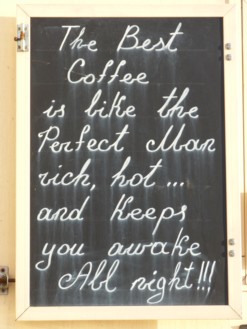 The Best
Coffee
is like the
Perfect Man
rich, hot ...
and Keeps
you awake
All night!!!